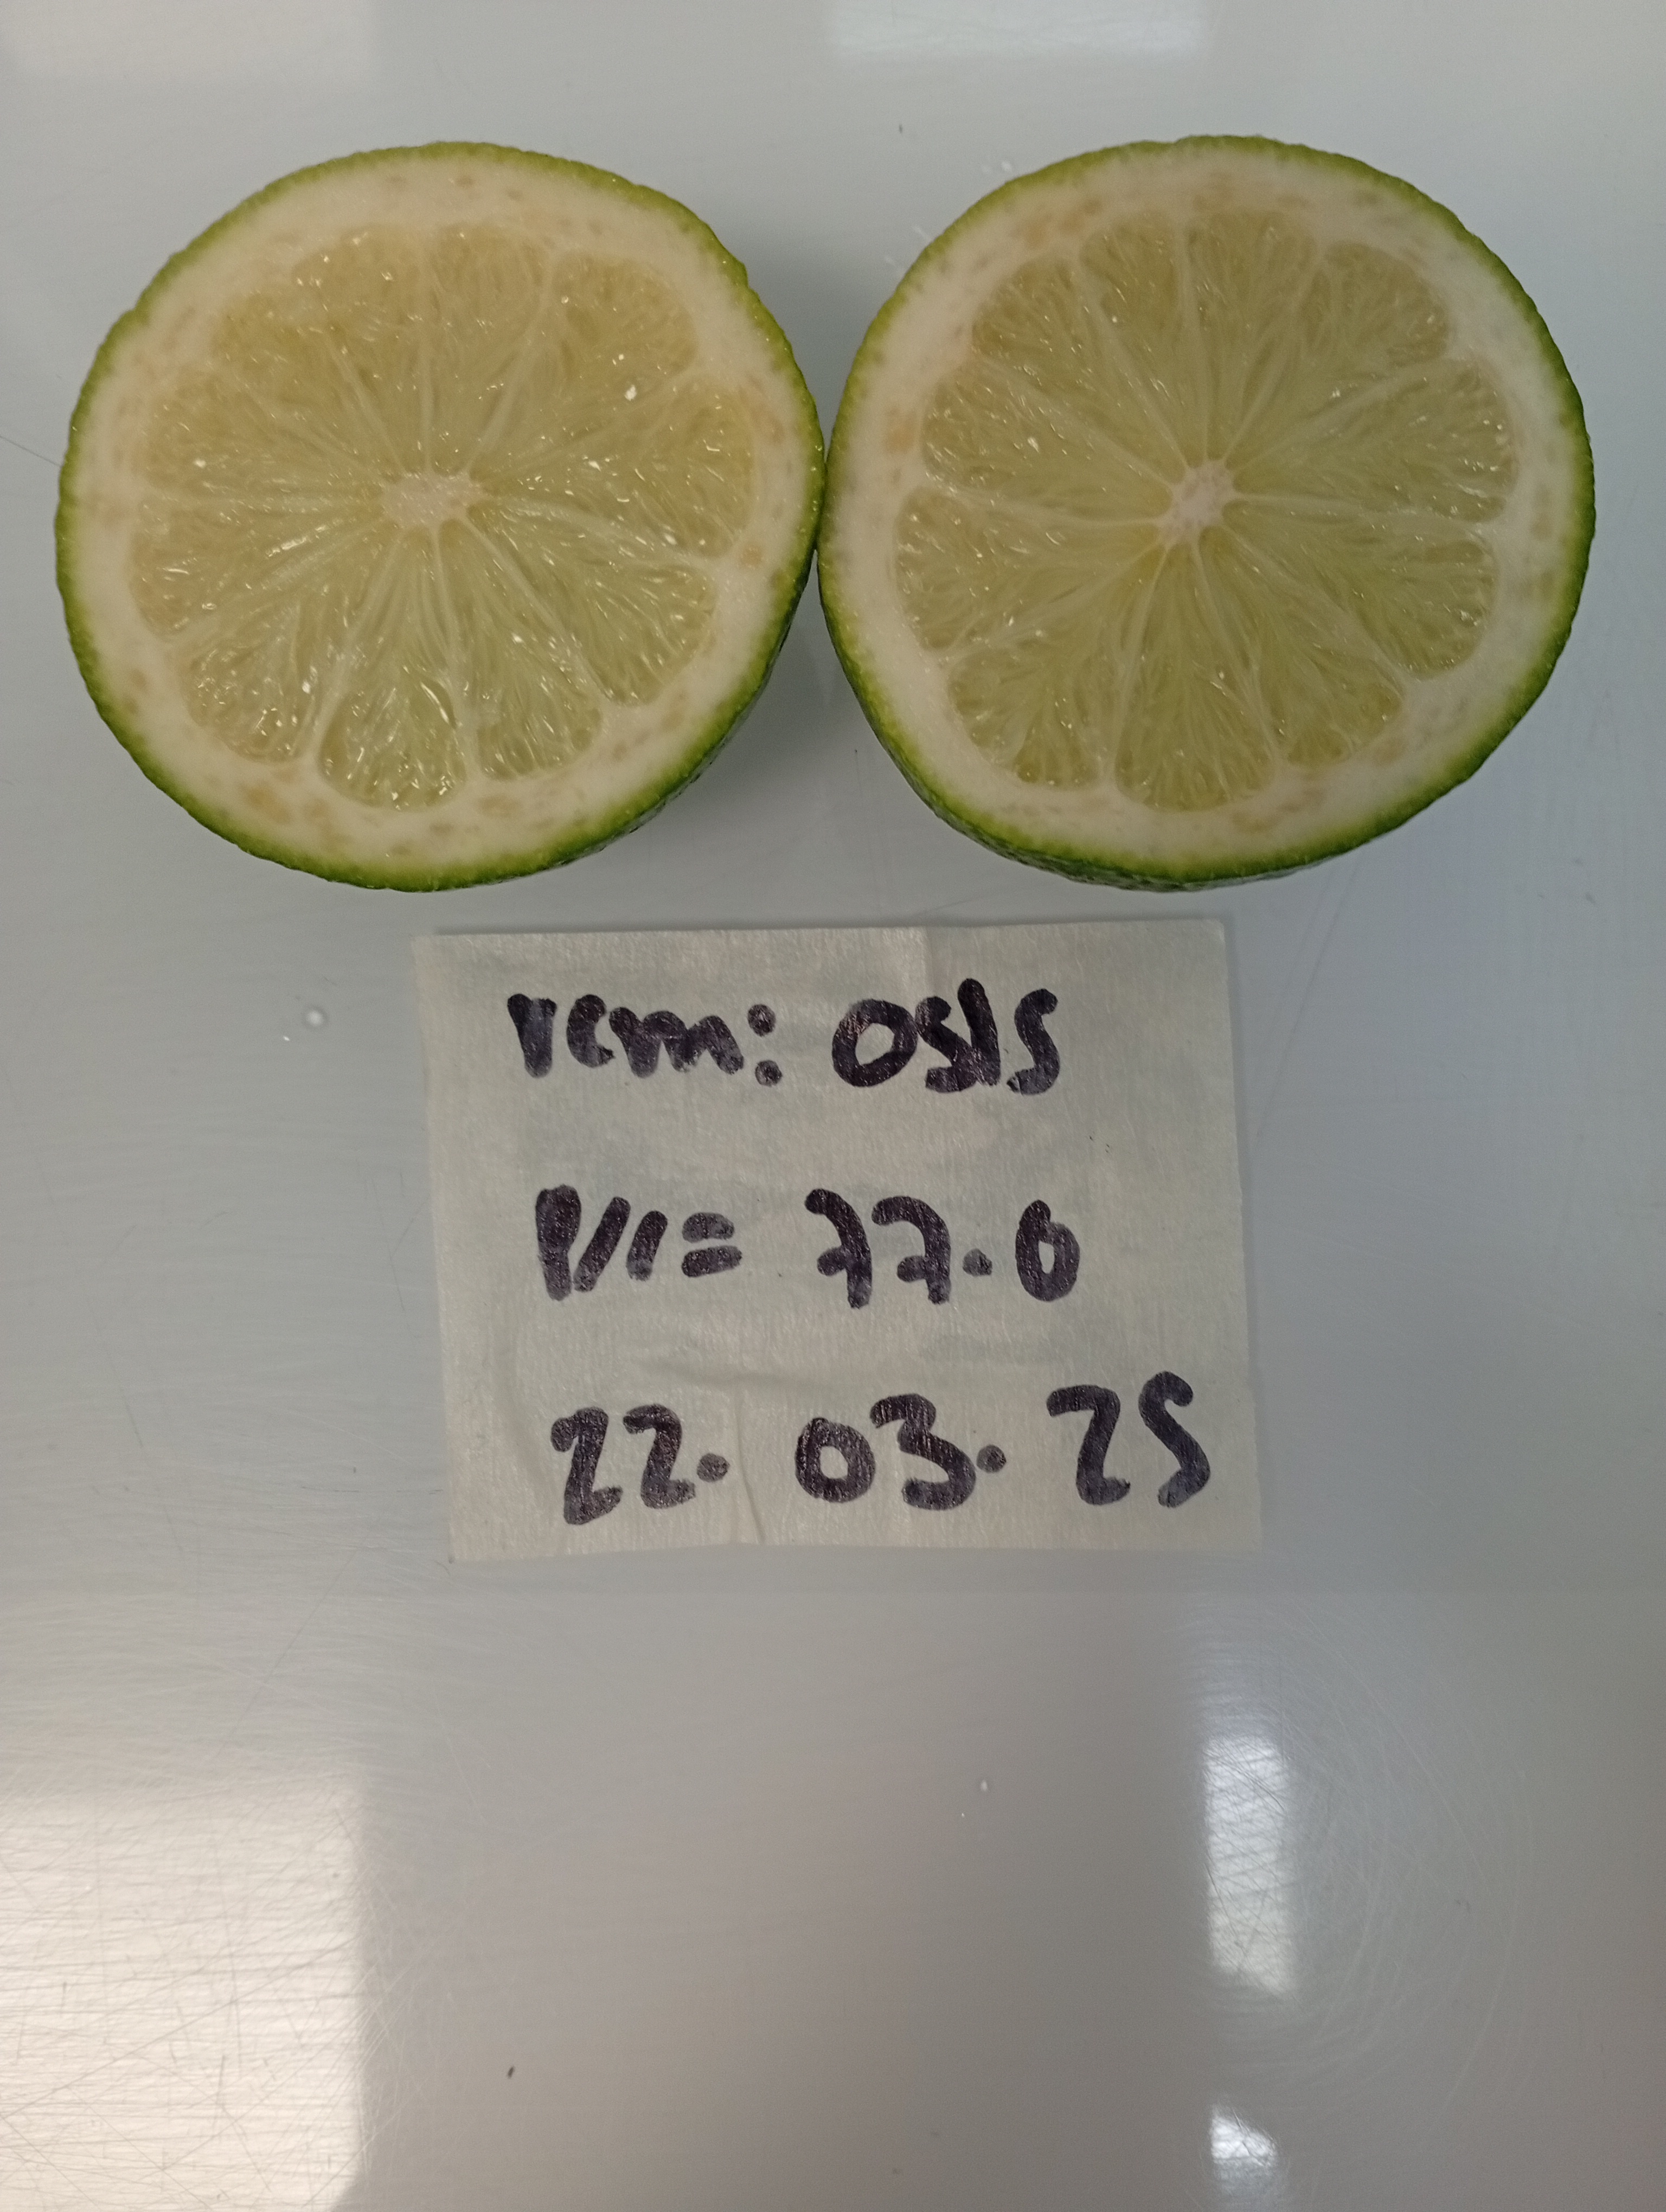 rem: 0515
P/1= 77.0
22.03.25